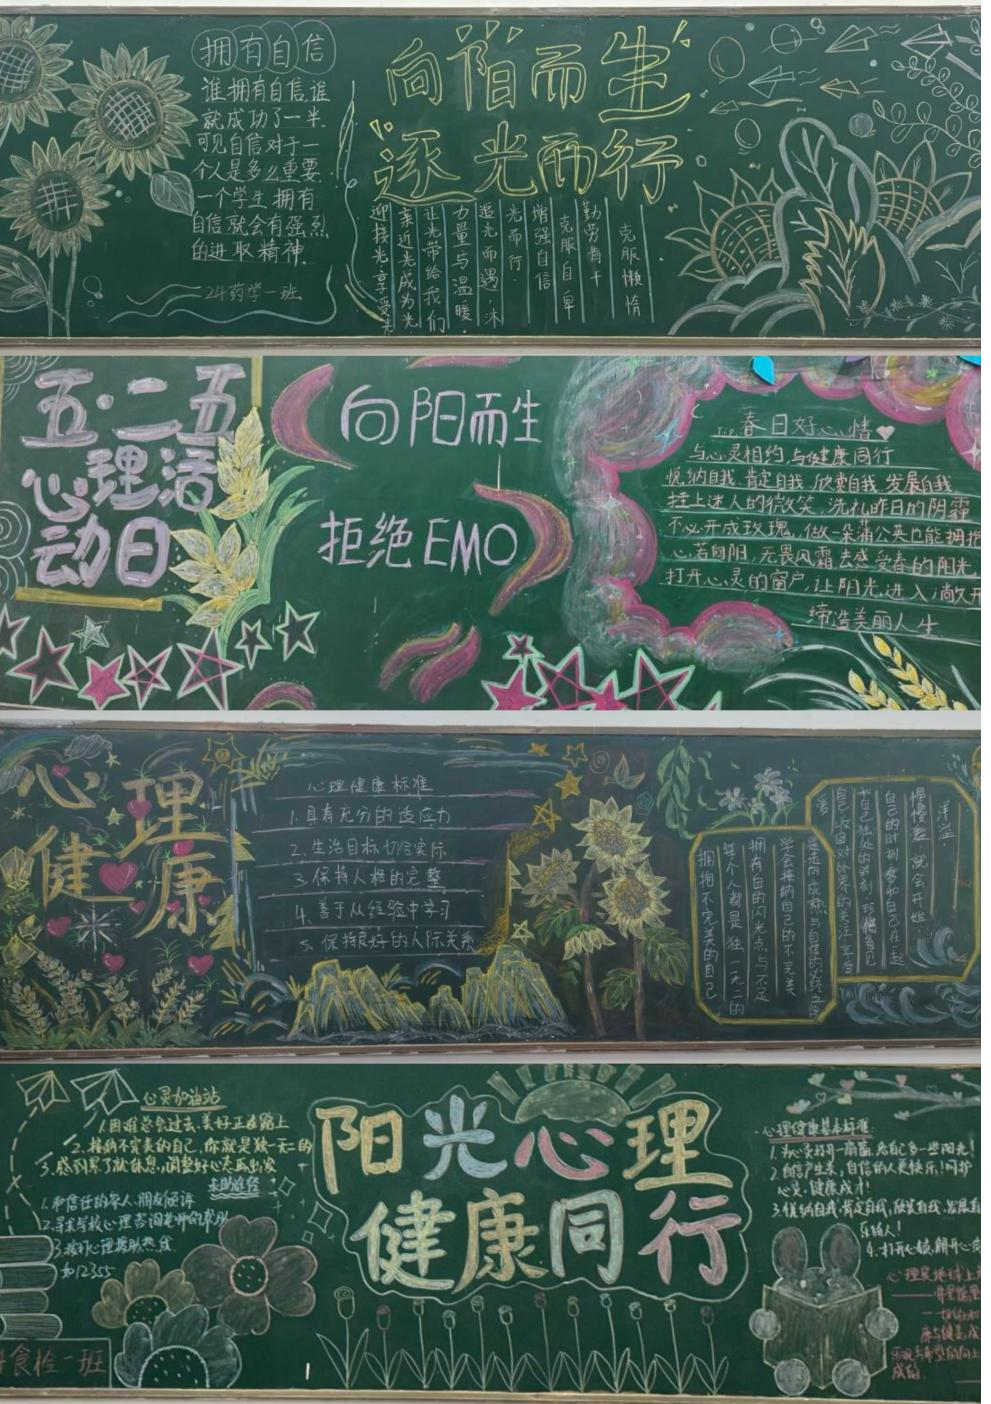 拥有自信
谁拥有自信,谁
就成功了一半.
可见自信对于一
个人是多么重要.
一个学生拥有
自信就会有强烈
的进取精神.
24药学一班
向阳而生
逐光而行
克服懒惰
勤劳肯干
克服自卑
增强自信
光而行
追光而遇·沐
力量与温暖.
让光带给我们
亲近光成为光
迎接光享受光
五·二五
心理活
动日
向阳而生
拒绝EMO
Tip 春日好心情
与心灵相约,与健康同行
悦纳自我.肯定自我.欣赏自我.发展自我
挂上迷人的微笑.洗礼昨日的阴霾
不必开成玫瑰,做一朵蒲公英也能拥抱
心若向阳.无畏风霜.去感受春的阳光
打开心灵的窗户,让阳光进入,敞开
缔造美丽人生
心理
健康
心理健康标准
1.具有充分的适应力
2.生活目标切合实际
3.保持人格的完整
4.善于从经验中学习
5.保持良好的人际关系
是走向成熟与自信的必经之路
学会接纳自己的不完美
拥有自的闪光点与不足
每个人都是独一无二的
拥抱不完美的自己
洋溢
慢慢起就会开始
自己的时刻参和自己在一起
心灵加油站
1.困难总会过去.美好正在路上
2.接纳不完美的自己,你就是独一无二的
3.感到累了就休息,调整好心态再出发
求助途径
1.和信任的家人.朋友倾诉
2.寻求学校心理咨询老师的帮助
3.拨打心理援助热线
如12355
食检一班
阳光心理
健康同行
心理健康基本标准
1.为心灵打开一扇窗,给自己多一些阳光!
2.自信产生美,自信的人更快乐!呵护
心灵,健康成才!
3.悦纳自我,肯定自我,欣赏自我,发展自
乐的人!
4.打开心镜,解开心